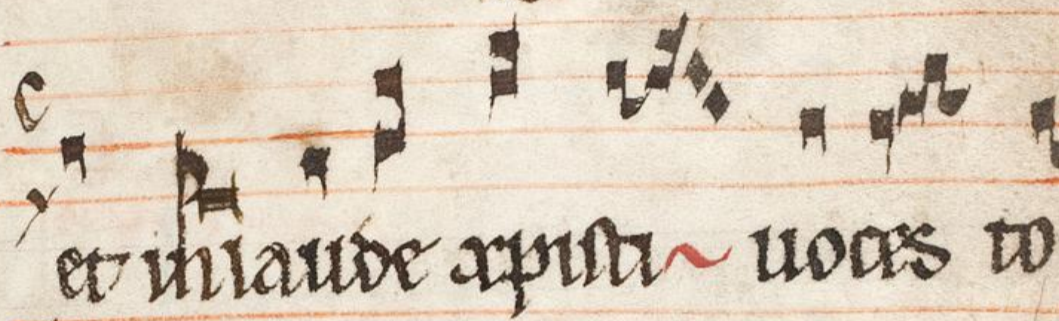 et in laude xpisti uoces to